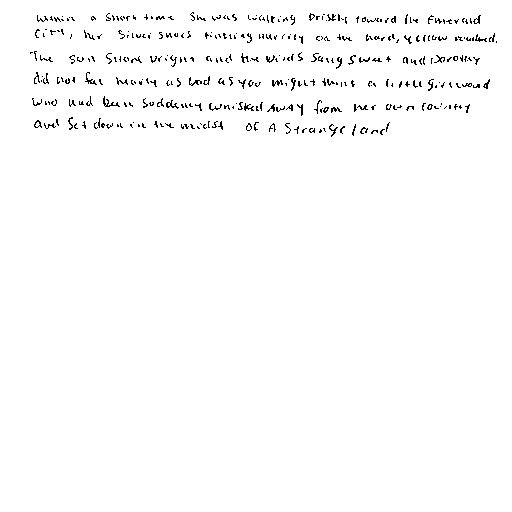 within a short time she was walking briskly toward the Emerald
City, her Silver Shoes tinkling merrily on the hard, yellow roadbed.
The sun shone bright and the birds sang sweet and Dorothy
did not feel nearly as bad as you might think a little girl would
who had been suddenly whisked away from her own country
and set down in the midst OF A Strange land